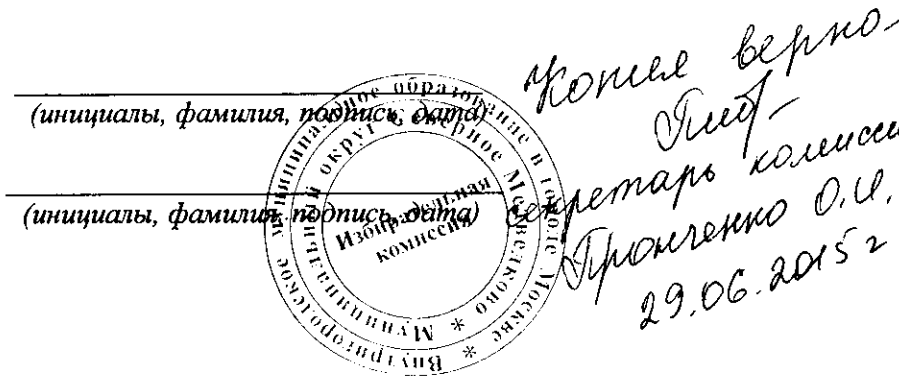 (инициалы, фамилия, подпись, дата)
(инициалы, фамилия, подпись, дата)
Внутригородское муниципальное образование в городе Москве *
Муниципальный округ Северное Медведково *
Избирательная
комиссия
Копия верна
секретарь комиссии
Пронченко О.И.
29.06.2015 г